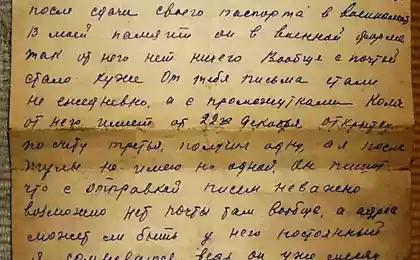 после сдачи своего паспорта в военкомат
В моей памяти он в военной форме
так от него нет ничего Вообще с почтой
стало хуже От тебя письма стали
не ежедневно, а с промежутками Коля
от него имеет от 22го декабря открытку
по счету третья, получил одну, а я после
не имею ни одной. Он пишет
что с отправкой писем неважно
возможно нет почты там вообще, а адрес
может ли быть у него постоянный
Я сомневаюсь ведь он уже